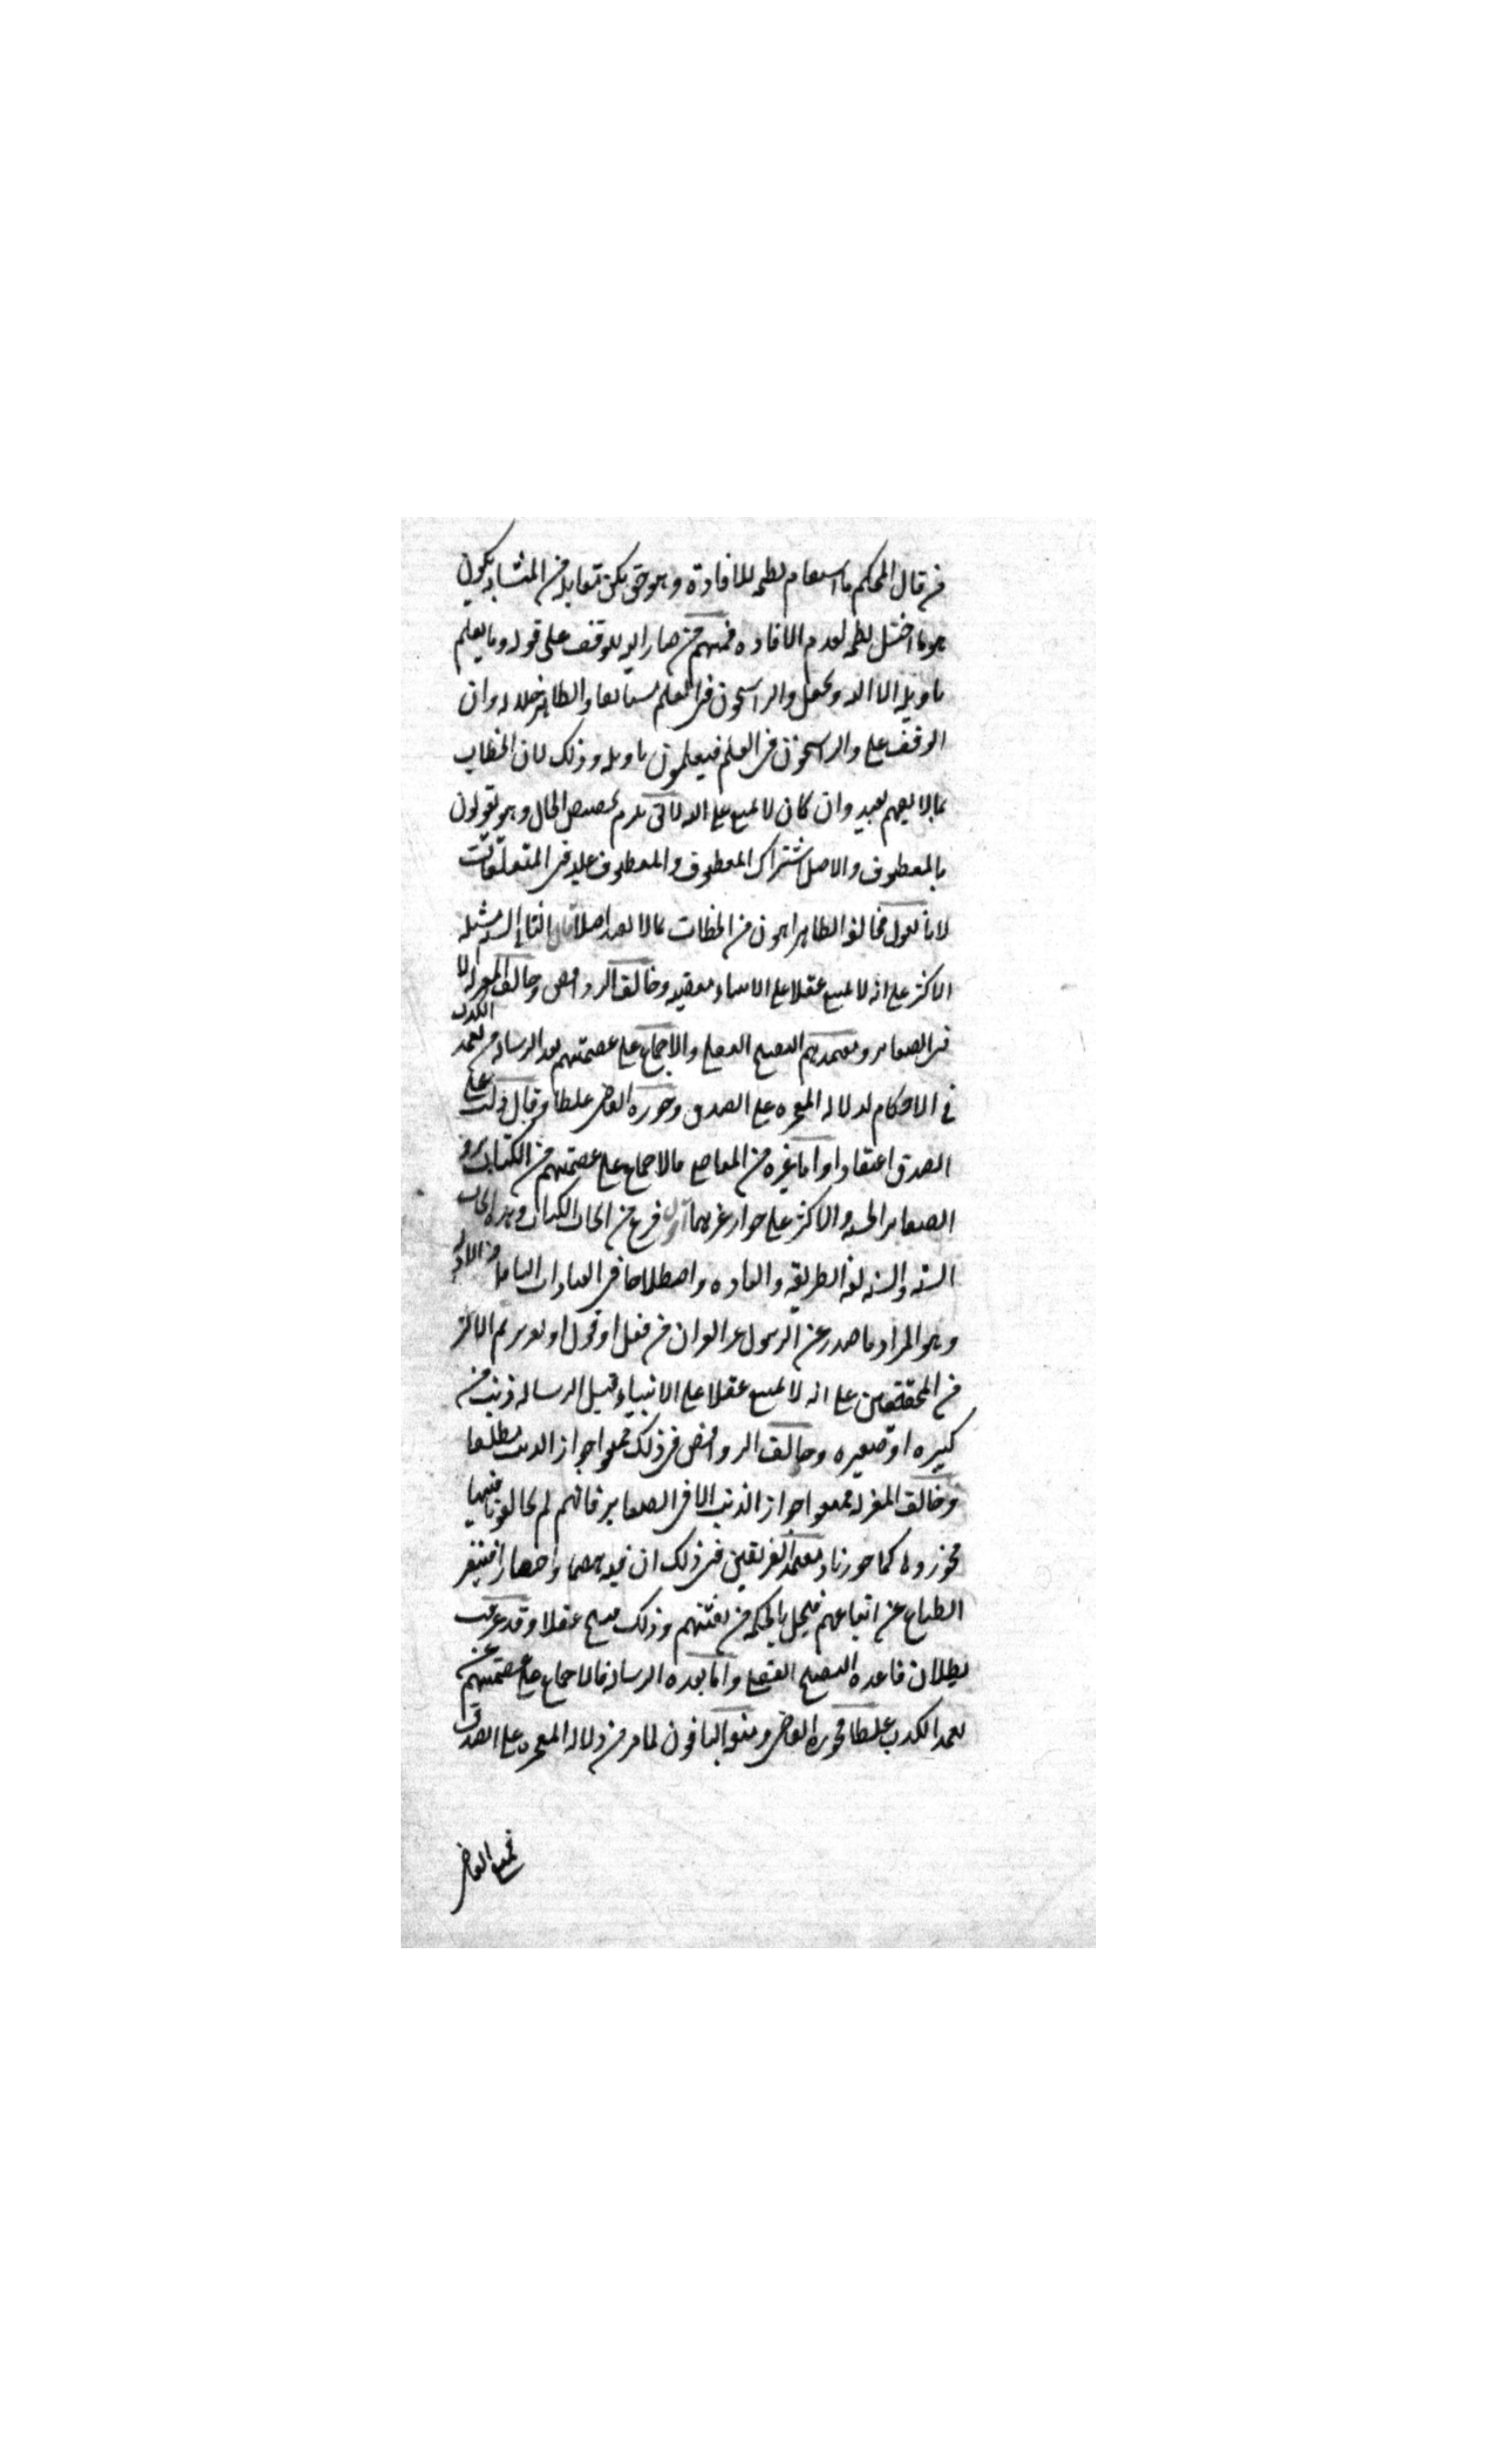 من قال المحكم ما استقام نظمه للافادة وهو حق لكن تقابله من المتشابه يكون
هو ما اختل نظمه لعدم الافاده فمنهم من صار اليه للوقف على قوله وما يعلم
تاويله الا الله ويجعل والراسخون في العلم مستانفا والظاهر خلافه وان
الوقف على والراسخون في العلم فيعلمون تاويله وذلك لان الخطاب
بما لا يفهم بعيد وان كان لا يمتنع على الله لا يلزم تخصيص الحال وهو يقولون
بالمعطوف والاصل اشتراك المعطوف والمعطوف عليه في المتعلقات
لانا نقول مخالفة الظاهر اهون من الخطاب بما لا يفيد اصلا قال السنة مسئلة
الاكثر على انه لا يمتنع عقلا على الانبياء معصيه وخالف الروافض وخالف المعتزلة الا
في الصغاير ومعتمدهم التقبيح العقلي والاجماع على عصمتهم بعد الرسالة من تعمد الكذب
في الاحكام لدلالة المعجزه على الصدق وجوزه القاضي غلطا وقال دلت على
الصدق اعتقادا واما غيره من المعاصي فالاجماع على عصمتهم من الكباير و
الصغاير الخسة والاكثر على جواز غيرهما اقول فرغ من ابحاث الكتاب وهذه ابحاث
السنة والسنة لغة الطريقة والعاده واصطلاحا في العبادات النافلة وفي الادلة
وهو المراد ما صدر عن الرسول غير القران من فعل او قول او تقرير ثم الاكثر
من المحققين على انه لا يمتنع عقلا على الانبياء قبل الرسالة ذنب من
كبيره او صغيره وخالف الروافض في ذلك فمنعوا جواز الذنب مطلقا
وخالف المعتزلة فمنعوا جواز الذنب الا في الصغاير فانهم لم يخالفونا فيها
فجوزوها كما جوزنا ومعتمد الفريقين في ذلك ان فيه هضما واحتقارا فتنفر
الطباع عن اتباعهم فيخل بالحكمة من بعثتهم وذلك قبيح عقلا وقد عرفت
بطلان قاعدة التقبيح العقلي واما بعد الرسالة فالاجماع على عصمتهم عن
تعمد الكذب غلطا فجوزه القاضي ومنعه الباقون لما مر من دلالة المعجزه على الصدق
فمنع القاضي